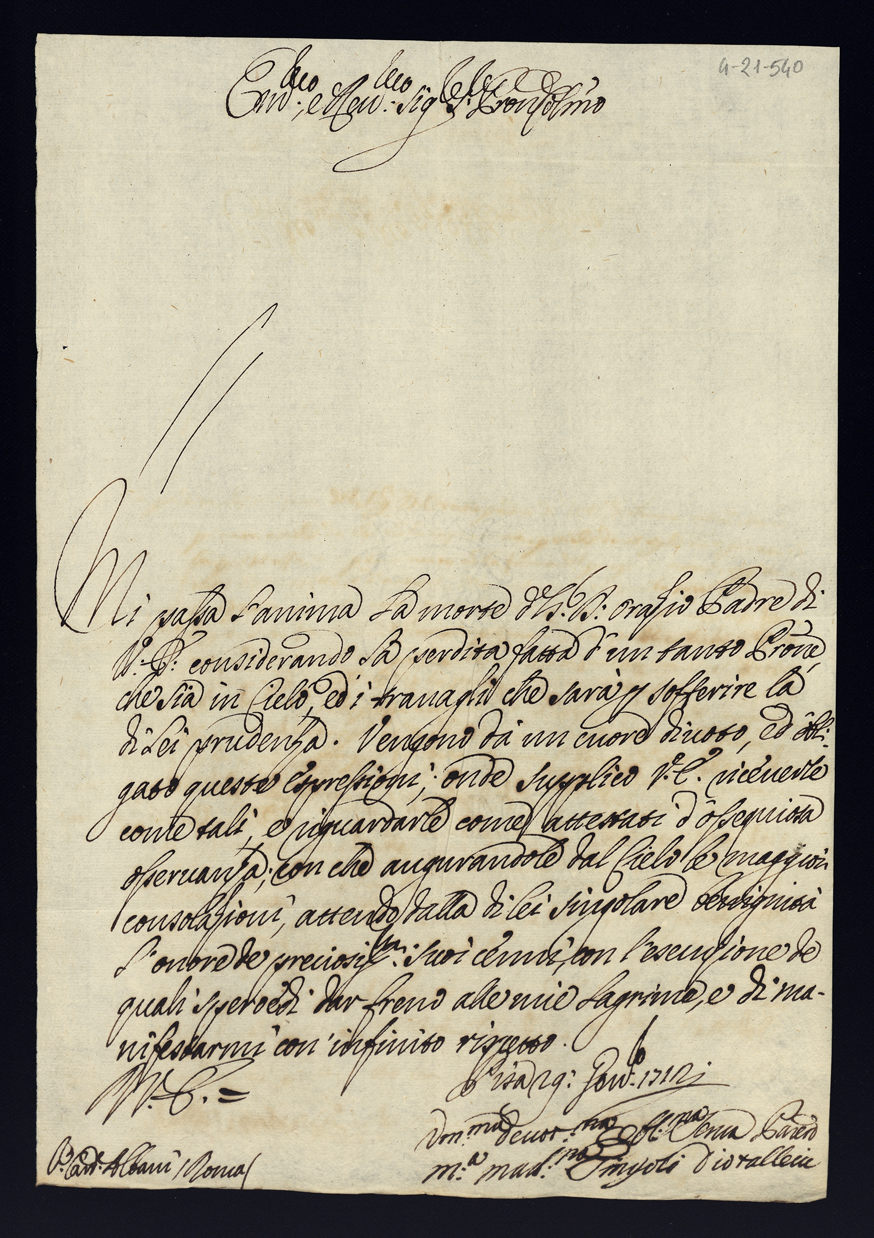 4-21-540
Em.mo, e Rev.mo Sig.re Sig.re Pron Col.mo
Mi passa l'anima la morte d'S. D. Orazio Padre di
V. E. considerando la perdita fatta d'un tanto Prone,
che sia in Cielo, ed i travagli che sarà p sofferire la
di Lei prudenza. Vengono da un cuore divoto, ed obli-
gato queste espressioni, onde supplico V. E. riceverle
come tali, e riguardarle come attestati d'ossequiosa
osservanza, con che augurandole dal Cielo le maggiori
consolazioni, attendo dalla di lei singolare benignità
l'onore de preciosiss.mi suoi cenni, con l'esecuzione de
quali spero di dar freno alle mie lagrime, e di ma-
nifestarmi con infinito rispetto.
V. E. =
Pisa 29: Gen.o 1712
Um.ma devot.ma Obl.ma Serva
M.a Mad.na Cingoli Diotallevi
S. Card. Albani / Roma /